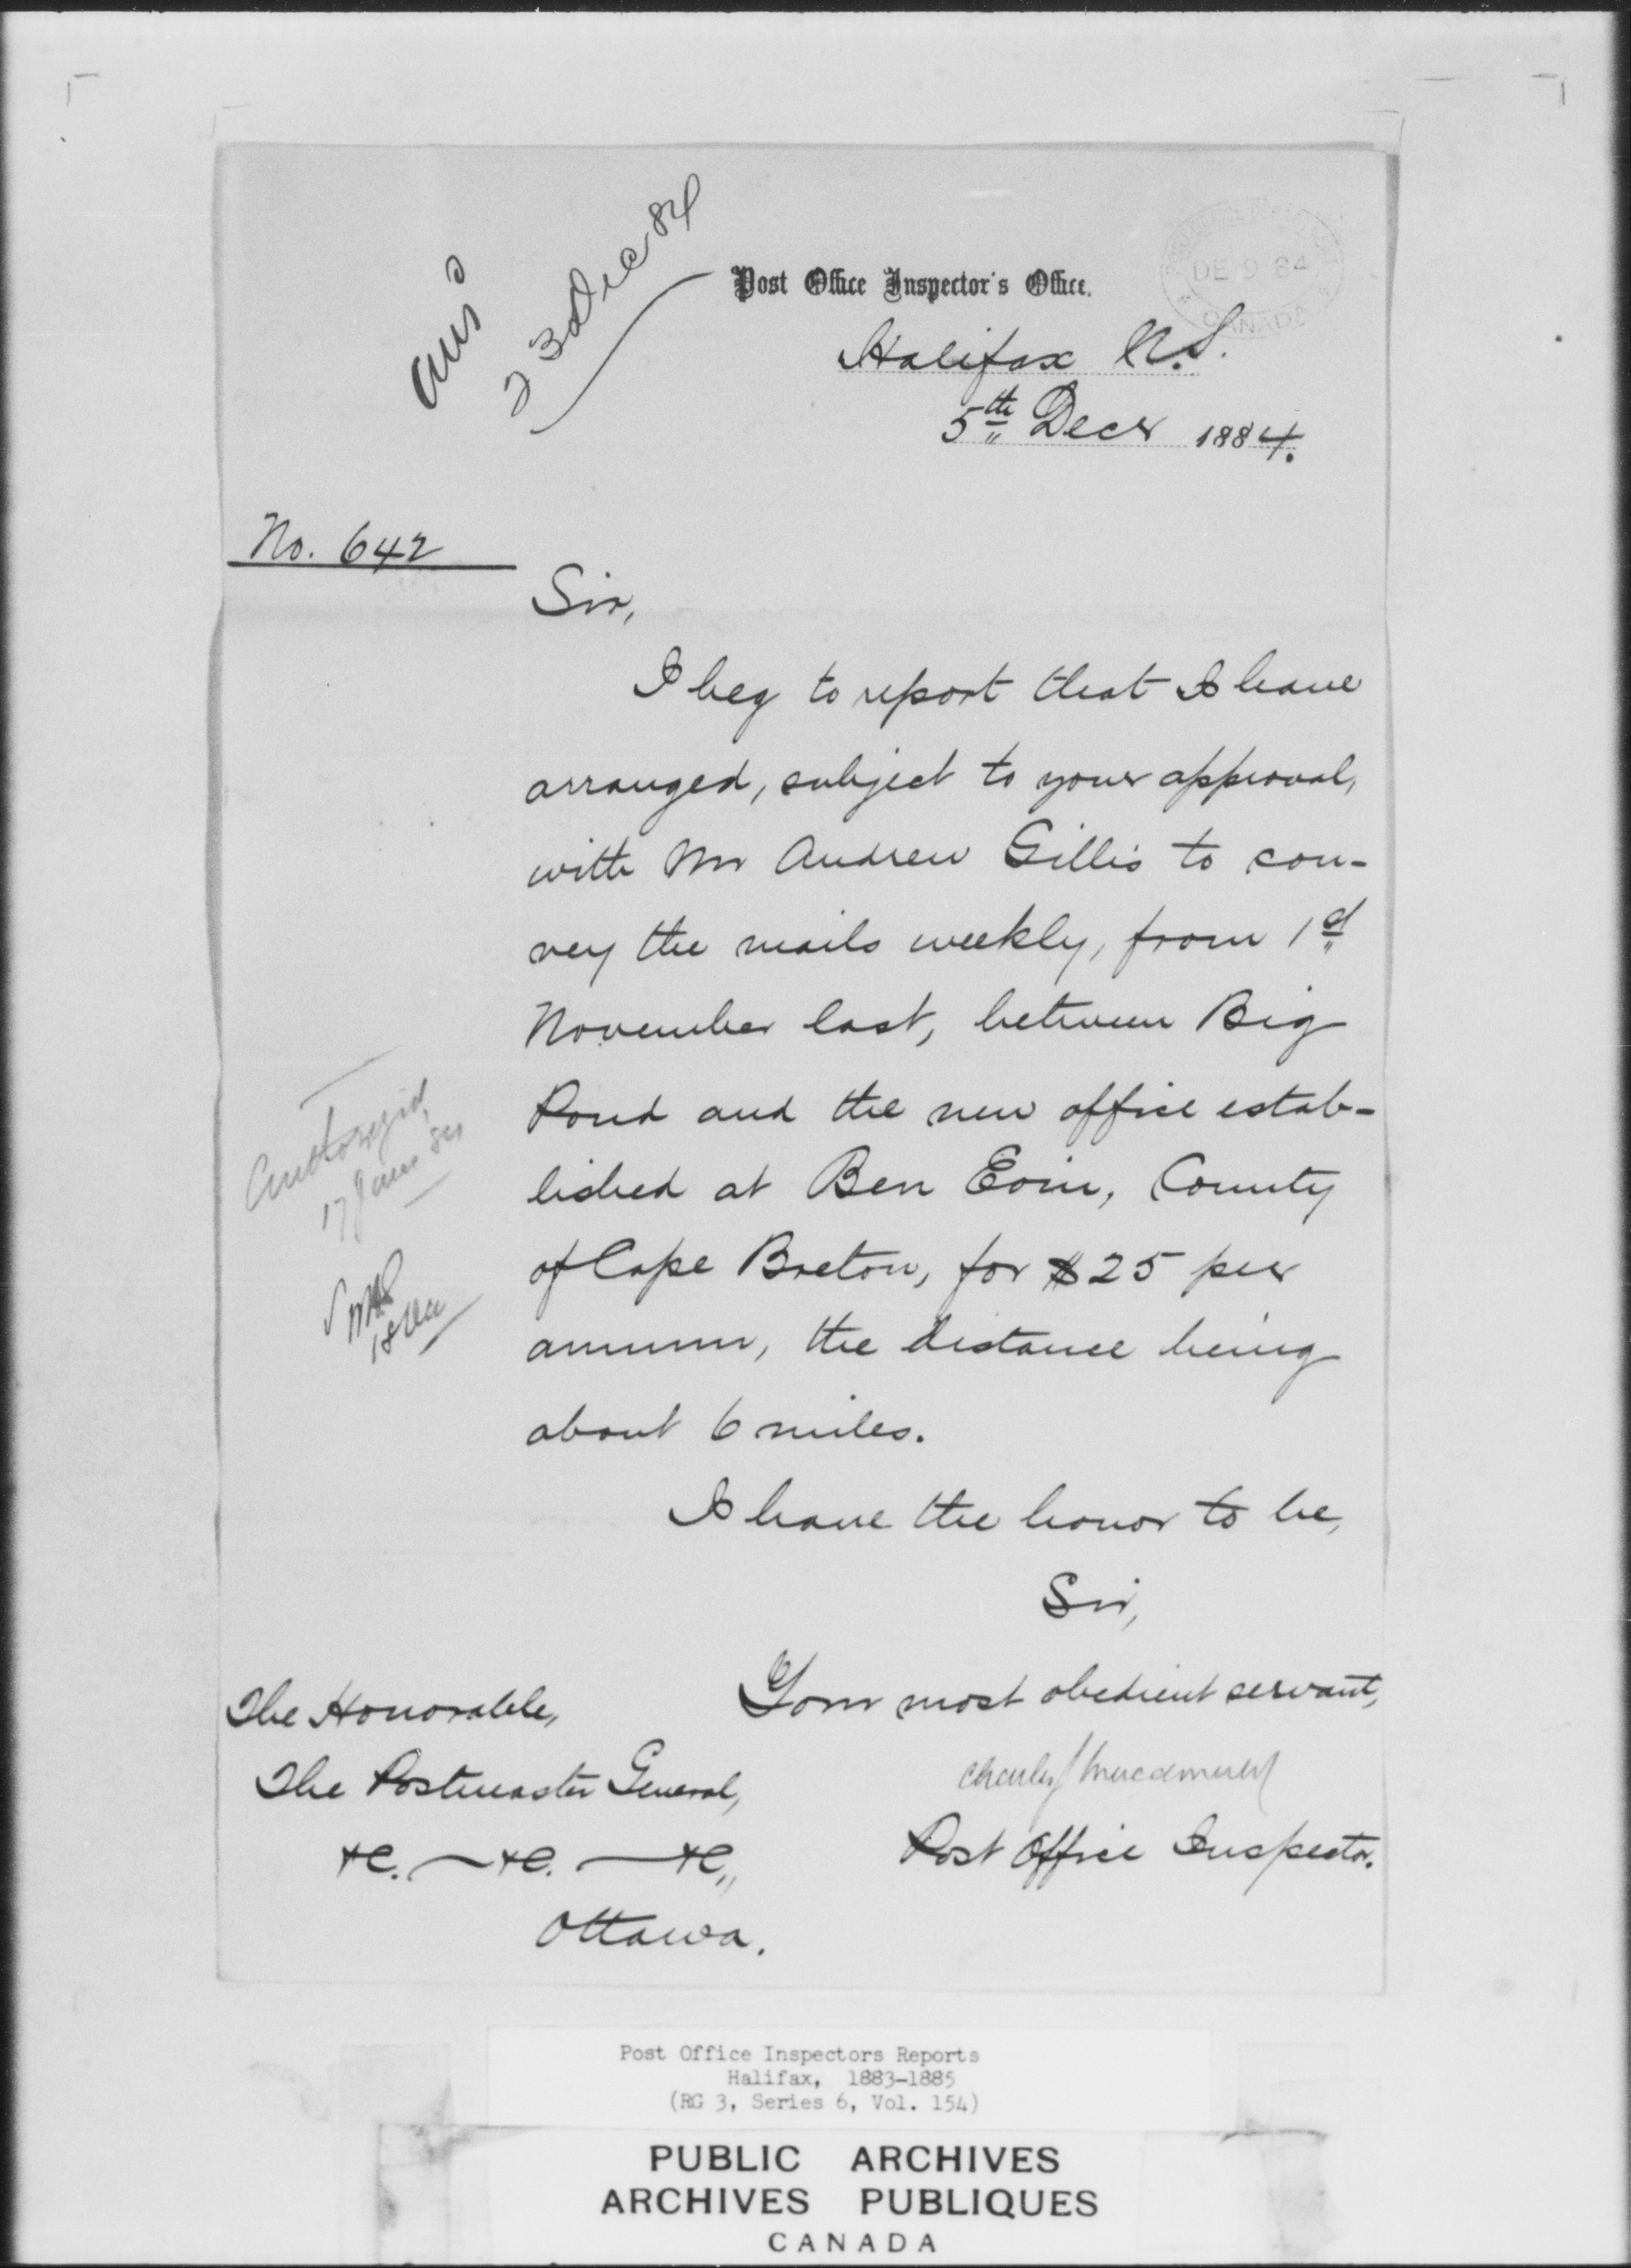 ansd
23 Dec 84
Post Office Inspector's Office.
DE 9 84
CANADA
Halifax N.S.
5th Decr 1884.
No. 642
Sir,
I beg to report that I have
arranged, subject to your approval,
with Mr Andrew Gillis to con-
vey the mails weekly, from 1st
November last, between Big
Pond and the new office estab-
lished at Ben Eoin, County
of Cape Breton, for $25 per
annum, the distance being
about 6 miles.
Authorized
17 June 84
18 Dec
I have the honor to be,
Sir,
Your most obedient servant,
Charles J Macdonald
Post Office Inspector.
The Honorable,
The Postmaster General,
&c. — &c. — &c,,
Ottawa.
Post Office Inspectors Reports
Halifax, 1883-1885
(RG 3, Series 6, Vol. 154)
PUBLIC ARCHIVES
ARCHIVES PUBLIQUES
CANADA